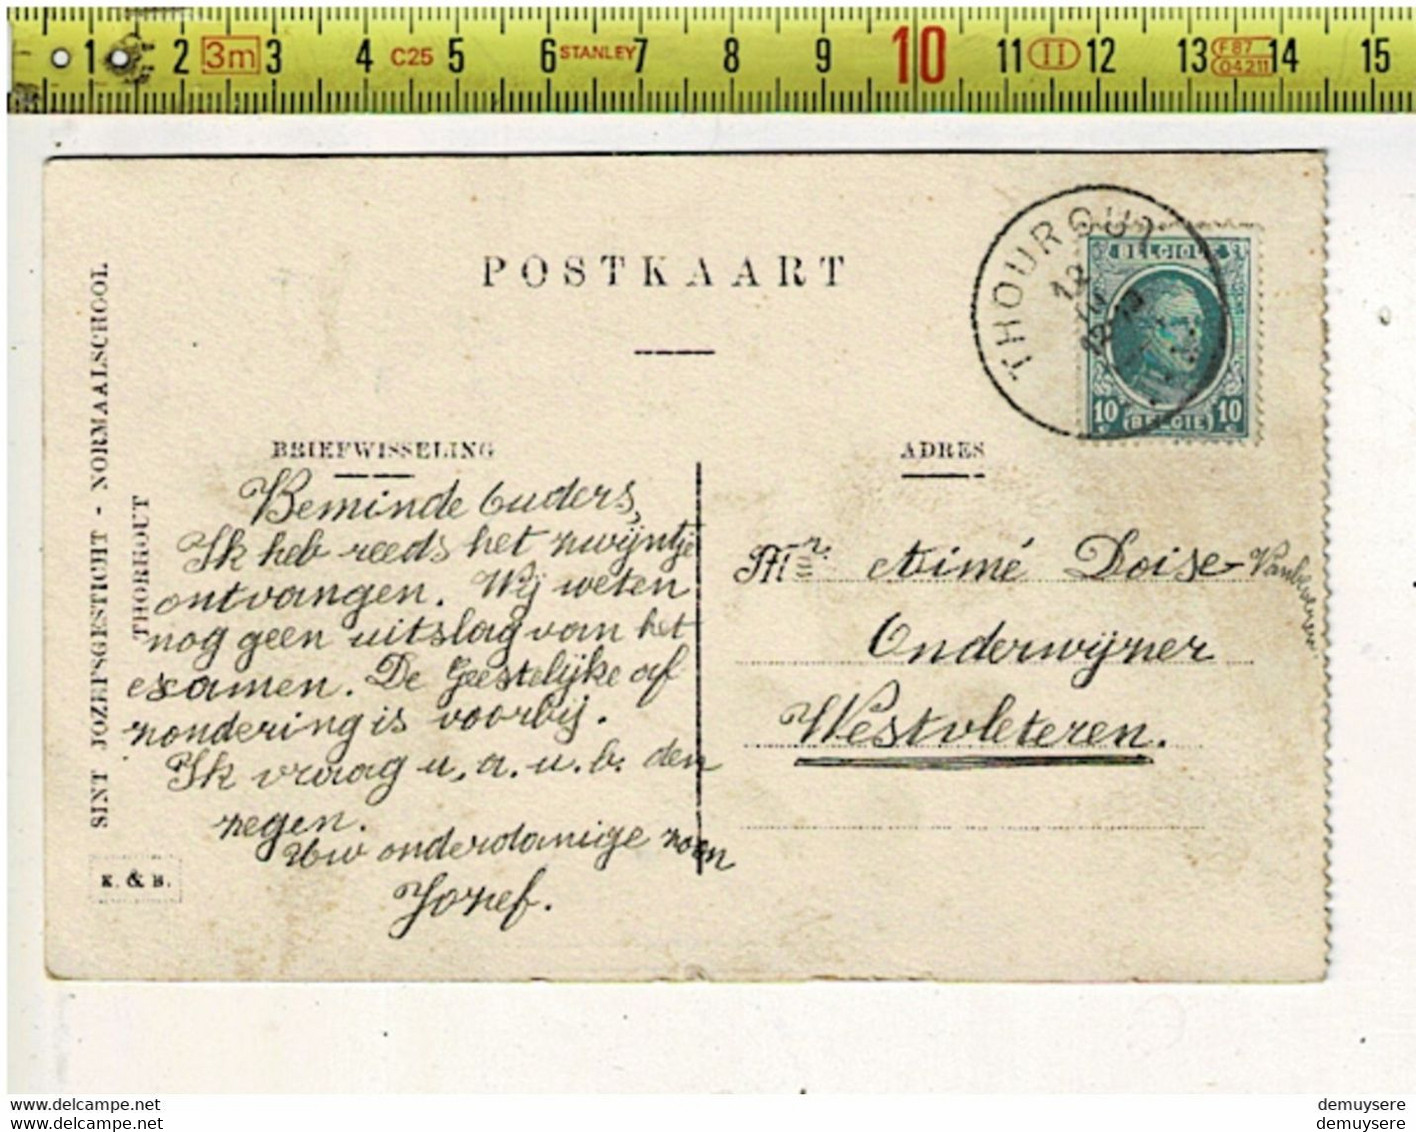 1 2 3m 3 4 C25 5 6 STANLEY 7 8 9 10 11 II 12 13 F 87 04211 14 15
POSTKAART
THOUROUT
BELGIQUE
10 10
BELGIË
SINT JOZEFSGESTICHT - NORMAALSCHOOL
THORHOUT
BRIEFWISSELING
Beminde Ouders,
Ik heb reeds het zwijntje
ontvangen. Wij weten
nog geen uitslag van het
examen. De Geestelijke af
zondering is voorbij.
Ik vraag u.a.u.b. den
zegen.
Uw onderdanige zoon
Jozef.
K. & B.
ADRES
Mr. Aimé Doise-
Onderwijzer
Westvleteren.
demuysere.net
demuysere.net
demuysere
demuysere